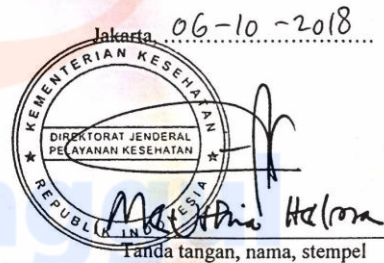 Jakarta, 06-10-2018
KEMENTERIAN KESEHATAN
DIREKTORAT JENDERAL
PELAYANAN KESEHATAN
REPUBLIK INDONESIA
Tanda tangan, nama, stempel